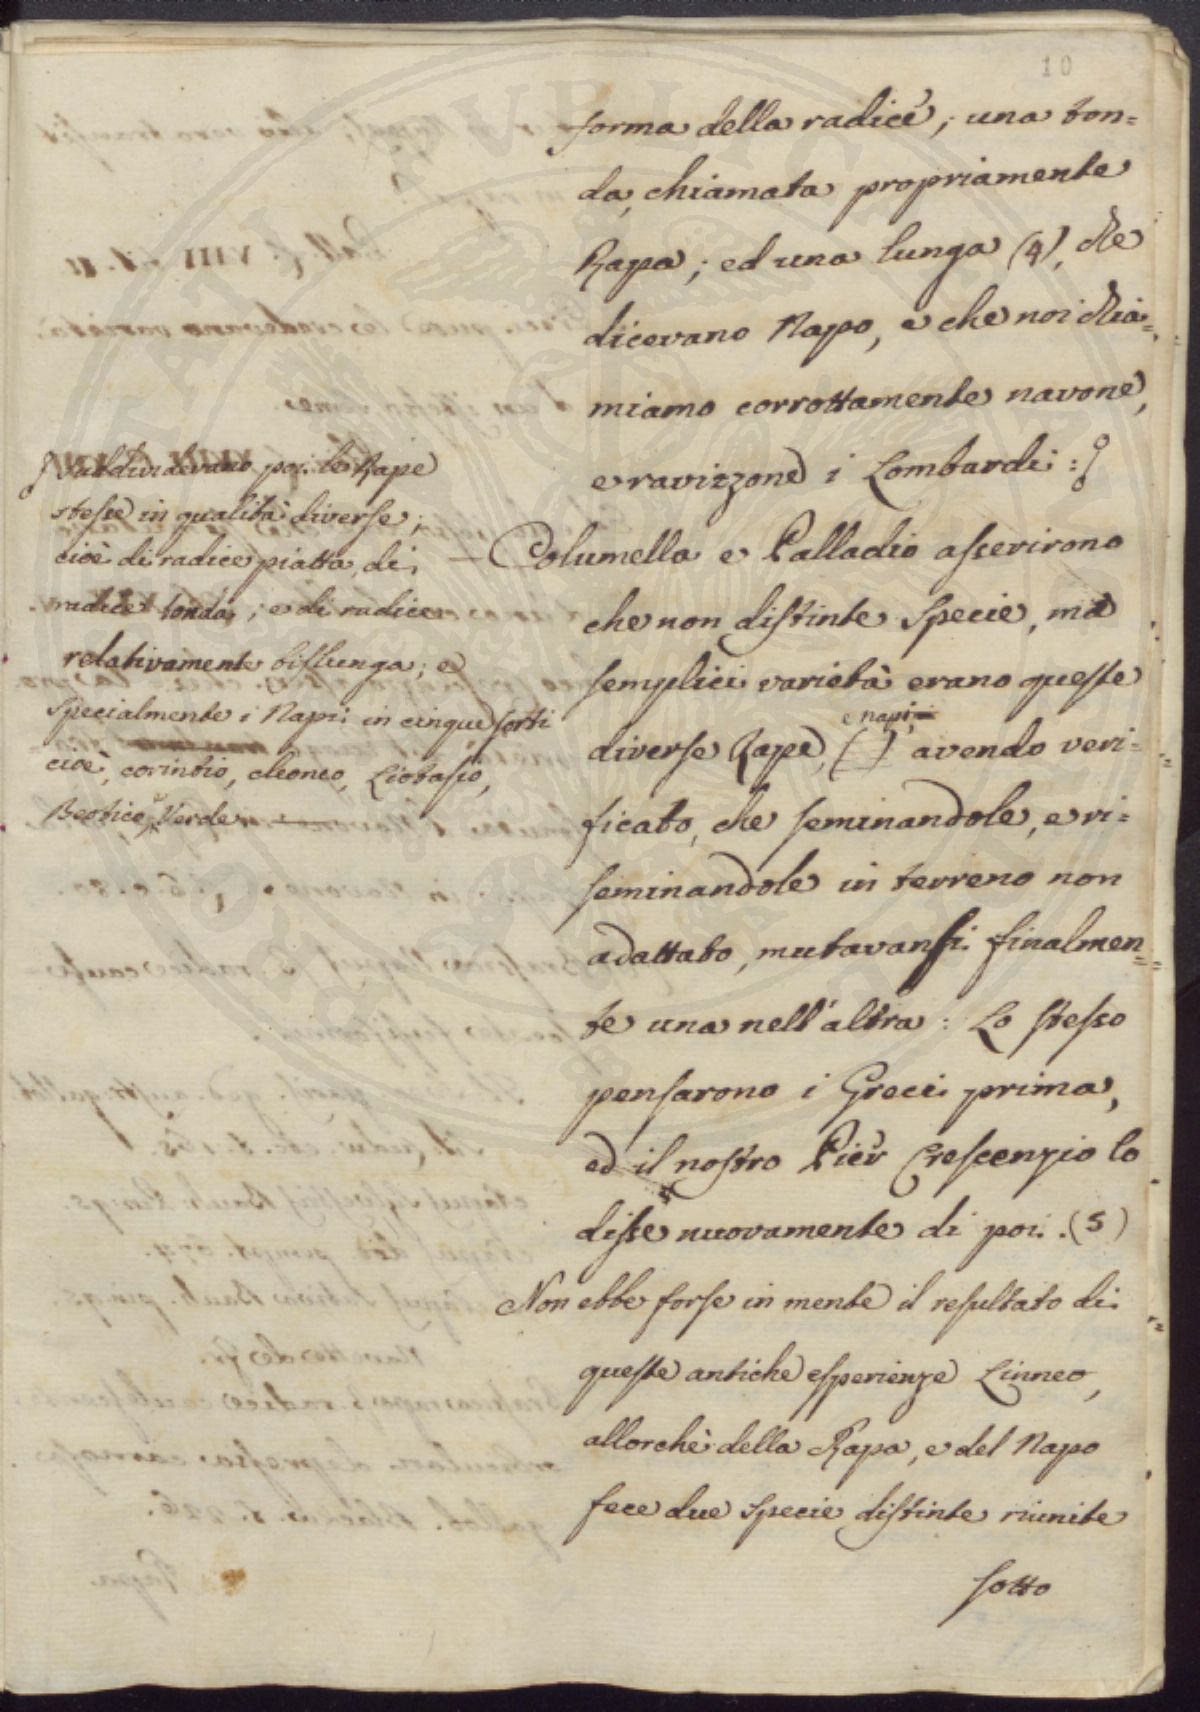 10
forma della radice, una ton=
da, chiamata propriamente
Rapa; ed una lunga (4), che
dicevano Napo, e che noi chia=
miamo corrottamente navone,
e ravizzone i Lombardi:
Columella e Palladio asserirono
che non distinte Specie, ma
semplici varietà erano queste
e napi
diverse Rape, ( ) avendo veri=
ficato, che seminandole, e ri=
seminandole in terreno non
adattato, mutavansi finalmen=
te una nell'altra: Lo stesso
pensarono i Greci prima,
ed il nostro Pier Crescenzio lo
disse nuovamente di poi. (5)
Non ebbe forse in mente il resultato di
queste antiche esperienze Linneo,
allorchè della Rapa, e del Napo
fece due Specie distinte riunite
sotto
Suddividevano poi le Rape
stesse in qualità diverse;
cioè di radice piatta, di
radice tonda; e di radice
relativamente bislunga; e
specialmente i Napi in cinque sorti
cioè, corintio, cleoneo, Liotasio,
Beotico, Verde